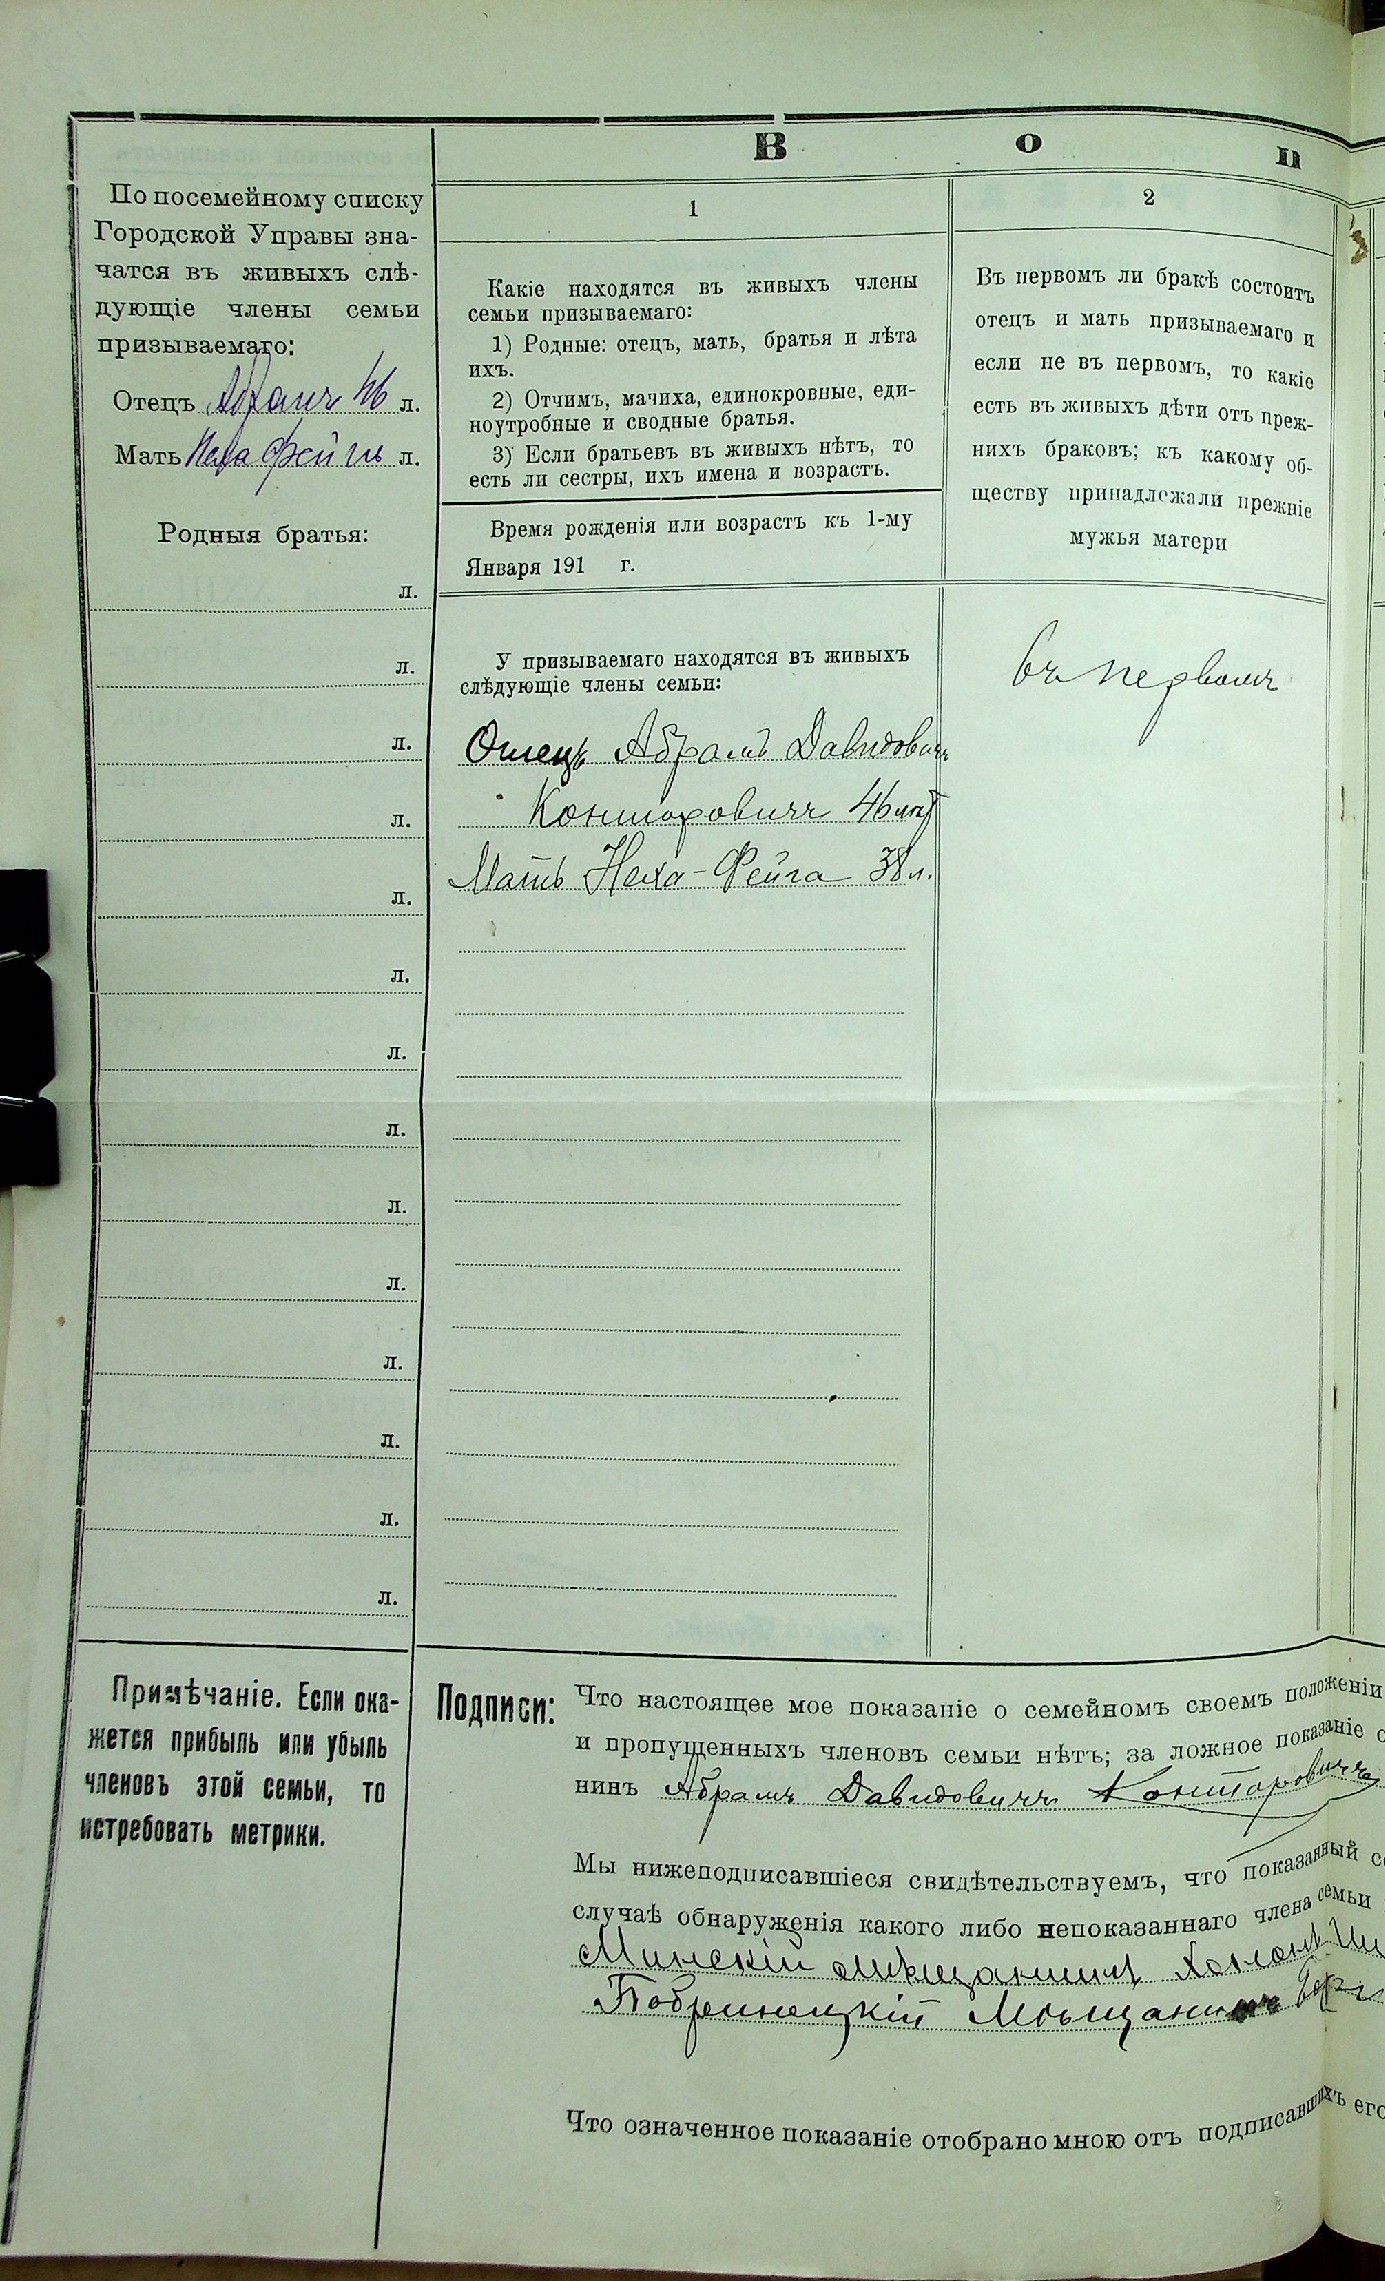 В о п
По посемейному списку
Городской Управы зна-
чатся въ живыхъ слѣ-
дующіе члены семьи
призываемаго:
Отецъ Абрамъ 46 л.
Мать Неха Фейга л.
Родныя братья:
л.
л.
л.
л.
л.
л.
л.
л.
л.
л.
л.
л.
л.
л.
1
Какіе находятся въ живыхъ члены
семьи призываемаго:
1) Родные: отецъ, мать, братья и лѣта
ихъ.
2) Отчимъ, мачиха, единокровные, еди-
ноутробные и сводные братья.
3) Если братьевъ въ живыхъ нѣтъ, то
есть ли сестры, ихъ имена и возрастъ.
Время рожденія или возрастъ къ 1-му
Января 191 г.
У призываемаго находятся въ живыхъ
слѣдующіе члены семьи:
Отецъ Абрамъ Давидовичъ
Конторовичъ 46 лѣт
Мать Неха-Фейга 38 л.
2
Въ первомъ ли бракѣ состоитъ
отецъ и мать призываемаго и
если не въ первомъ, то какіе
есть въ живыхъ дѣти отъ преж-
нихъ браковъ; къ какому об-
ществу принадлежали прежніе
мужья матери
въ первомъ
Примѣчаніе. Если ока-
жется прибыль или убыль
членовъ этой семьи, то
истребовать метрики.
Подписи: Что настоящее мое показаніе о семейномъ своемъ положеніи
и пропущенныхъ членовъ семьи нѣтъ; за ложное показаніе о
нинъ Абрамъ Давидовичъ Конторовичъ
Мы нижеподписавшіеся свидѣтельствуемъ, что показанный се
случаѣ обнаруженія какого либо непоказаннаго члена семьи
Минскій мѣщанинъ
Мѣщанинъ
Что означенное показаніе отобрано мною отъ подписавшихъ его